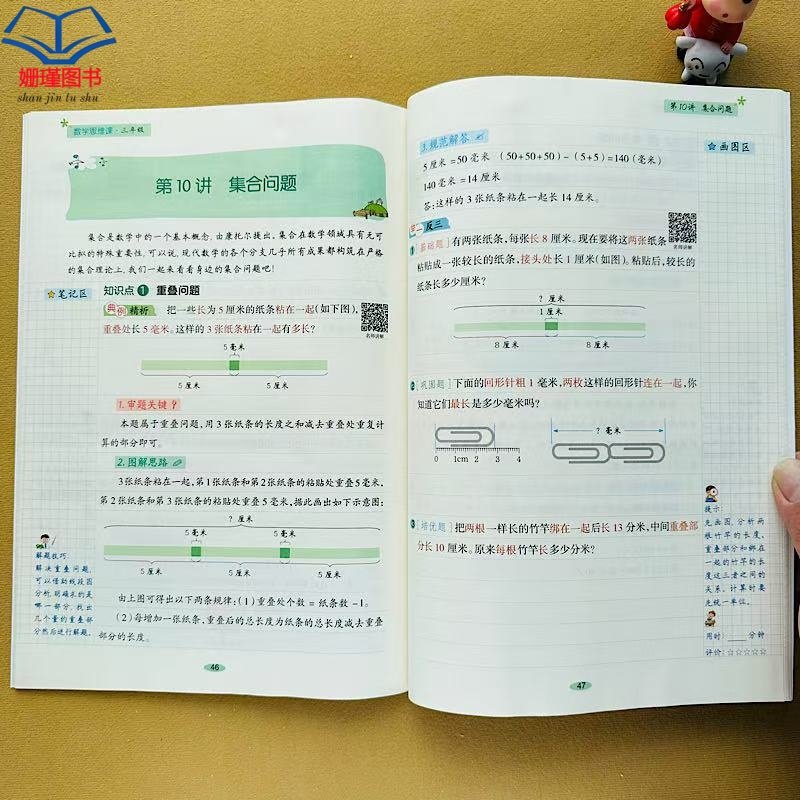 姗瑾图书
shan jin tu shu
数学思维课·三年级
第10讲 集合问题
集合是数学中的一个基本概念,由康托尔提出。集合在数学领域具有无可
比拟的特殊重要性,可以说,现代数学的各个分支几乎所有成果都构筑在严格
的集合理论上,我们一起来看看身边的集合问题吧!
笔记区
知识点1 重叠问题
典例精析 把一些长为5厘米的纸条粘在一起(如下图),
重叠处长5毫米。这样的3张纸条粘在一起有多长?
名师讲解
5毫米
5厘米 5厘米
1.审题关键
本题属于重叠问题,用3张纸条的长度之和减去重叠处重复计
算的部分即可。
2.图解思路
3张纸条粘在一起,第1张纸条和第2张纸条的粘贴处重叠5毫米,
第2张纸条和第3张纸条的粘贴处重叠5毫米,据此画出如下示意图:
?厘米
5毫米 5毫米
5厘米 5厘米 5厘米
解题技巧:
解决重叠问题,
可以借助线段图
分析,明确求的是
哪一部分,找出
几个量的重叠部
分然后进行解题。
由上图可得出以下两条规律:(1)重叠处个数=纸条数-1。
(2)每增加一张纸条,重叠后的总长度为纸条的总长度减去重叠
部分的长度。
46
第10讲 集合问题
3.规范解答
5厘米=50毫米 (50+50+50)-(5+5)=140(毫米)
140毫米=14厘米
答:这样的3张纸条粘在一起长14厘米。
画图区
举一反三
1 [基础题]有两张纸条,每张长8厘米。现在要将这两张纸条
粘贴成一张较长的纸条,接头处长1厘米(如图)。粘贴后,较长的
纸条长多少厘米?
名师讲解
?厘米
1厘米
8厘米 8厘米
2 [巩固题]下面的回形针粗1毫米,两枚这样的回形针连在一起,你
知道它们最长是多少毫米吗?
?毫米
0 1cm 2 3 4
3 [培优题]把两根一样长的竹竿绑在一起后长13分米,中间重叠部
分长10厘米。原来每根竹竿长多少分米?
提示:
先画图,分析两
根竹竿的长度、
重叠部分和绑在
一起的竹竿的长
度这三者之间的
关系。计算时要
先统一单位。
用时:____分钟
评价:☆☆☆☆☆
47